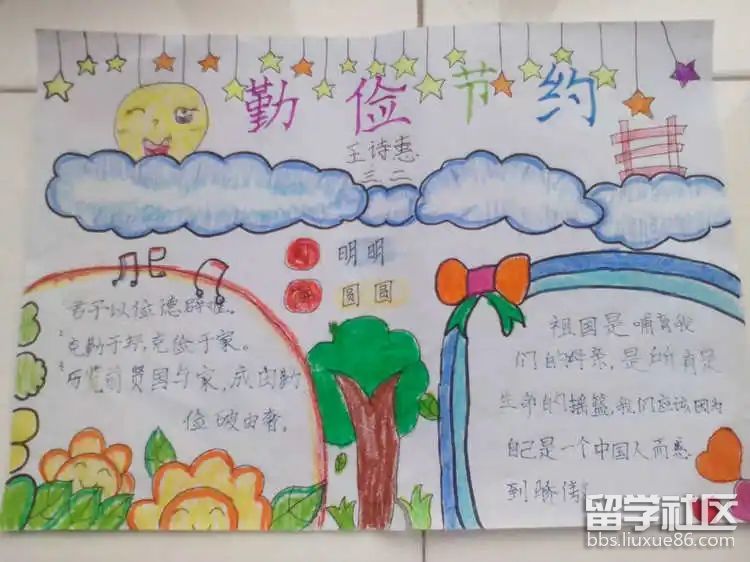 勤俭节约
王诗惠
三、二
明明
圆圆
君子以俭德辟难。
克勤于邦，克俭于家。
历览前贤国与家，成由勤
俭破由奢。
祖国是哺育我
们的母亲，是所有
生命的摇篮，我们应该因为
自己是一个中国人而感
到骄傲
留学社区
bbs.liuxue86.com